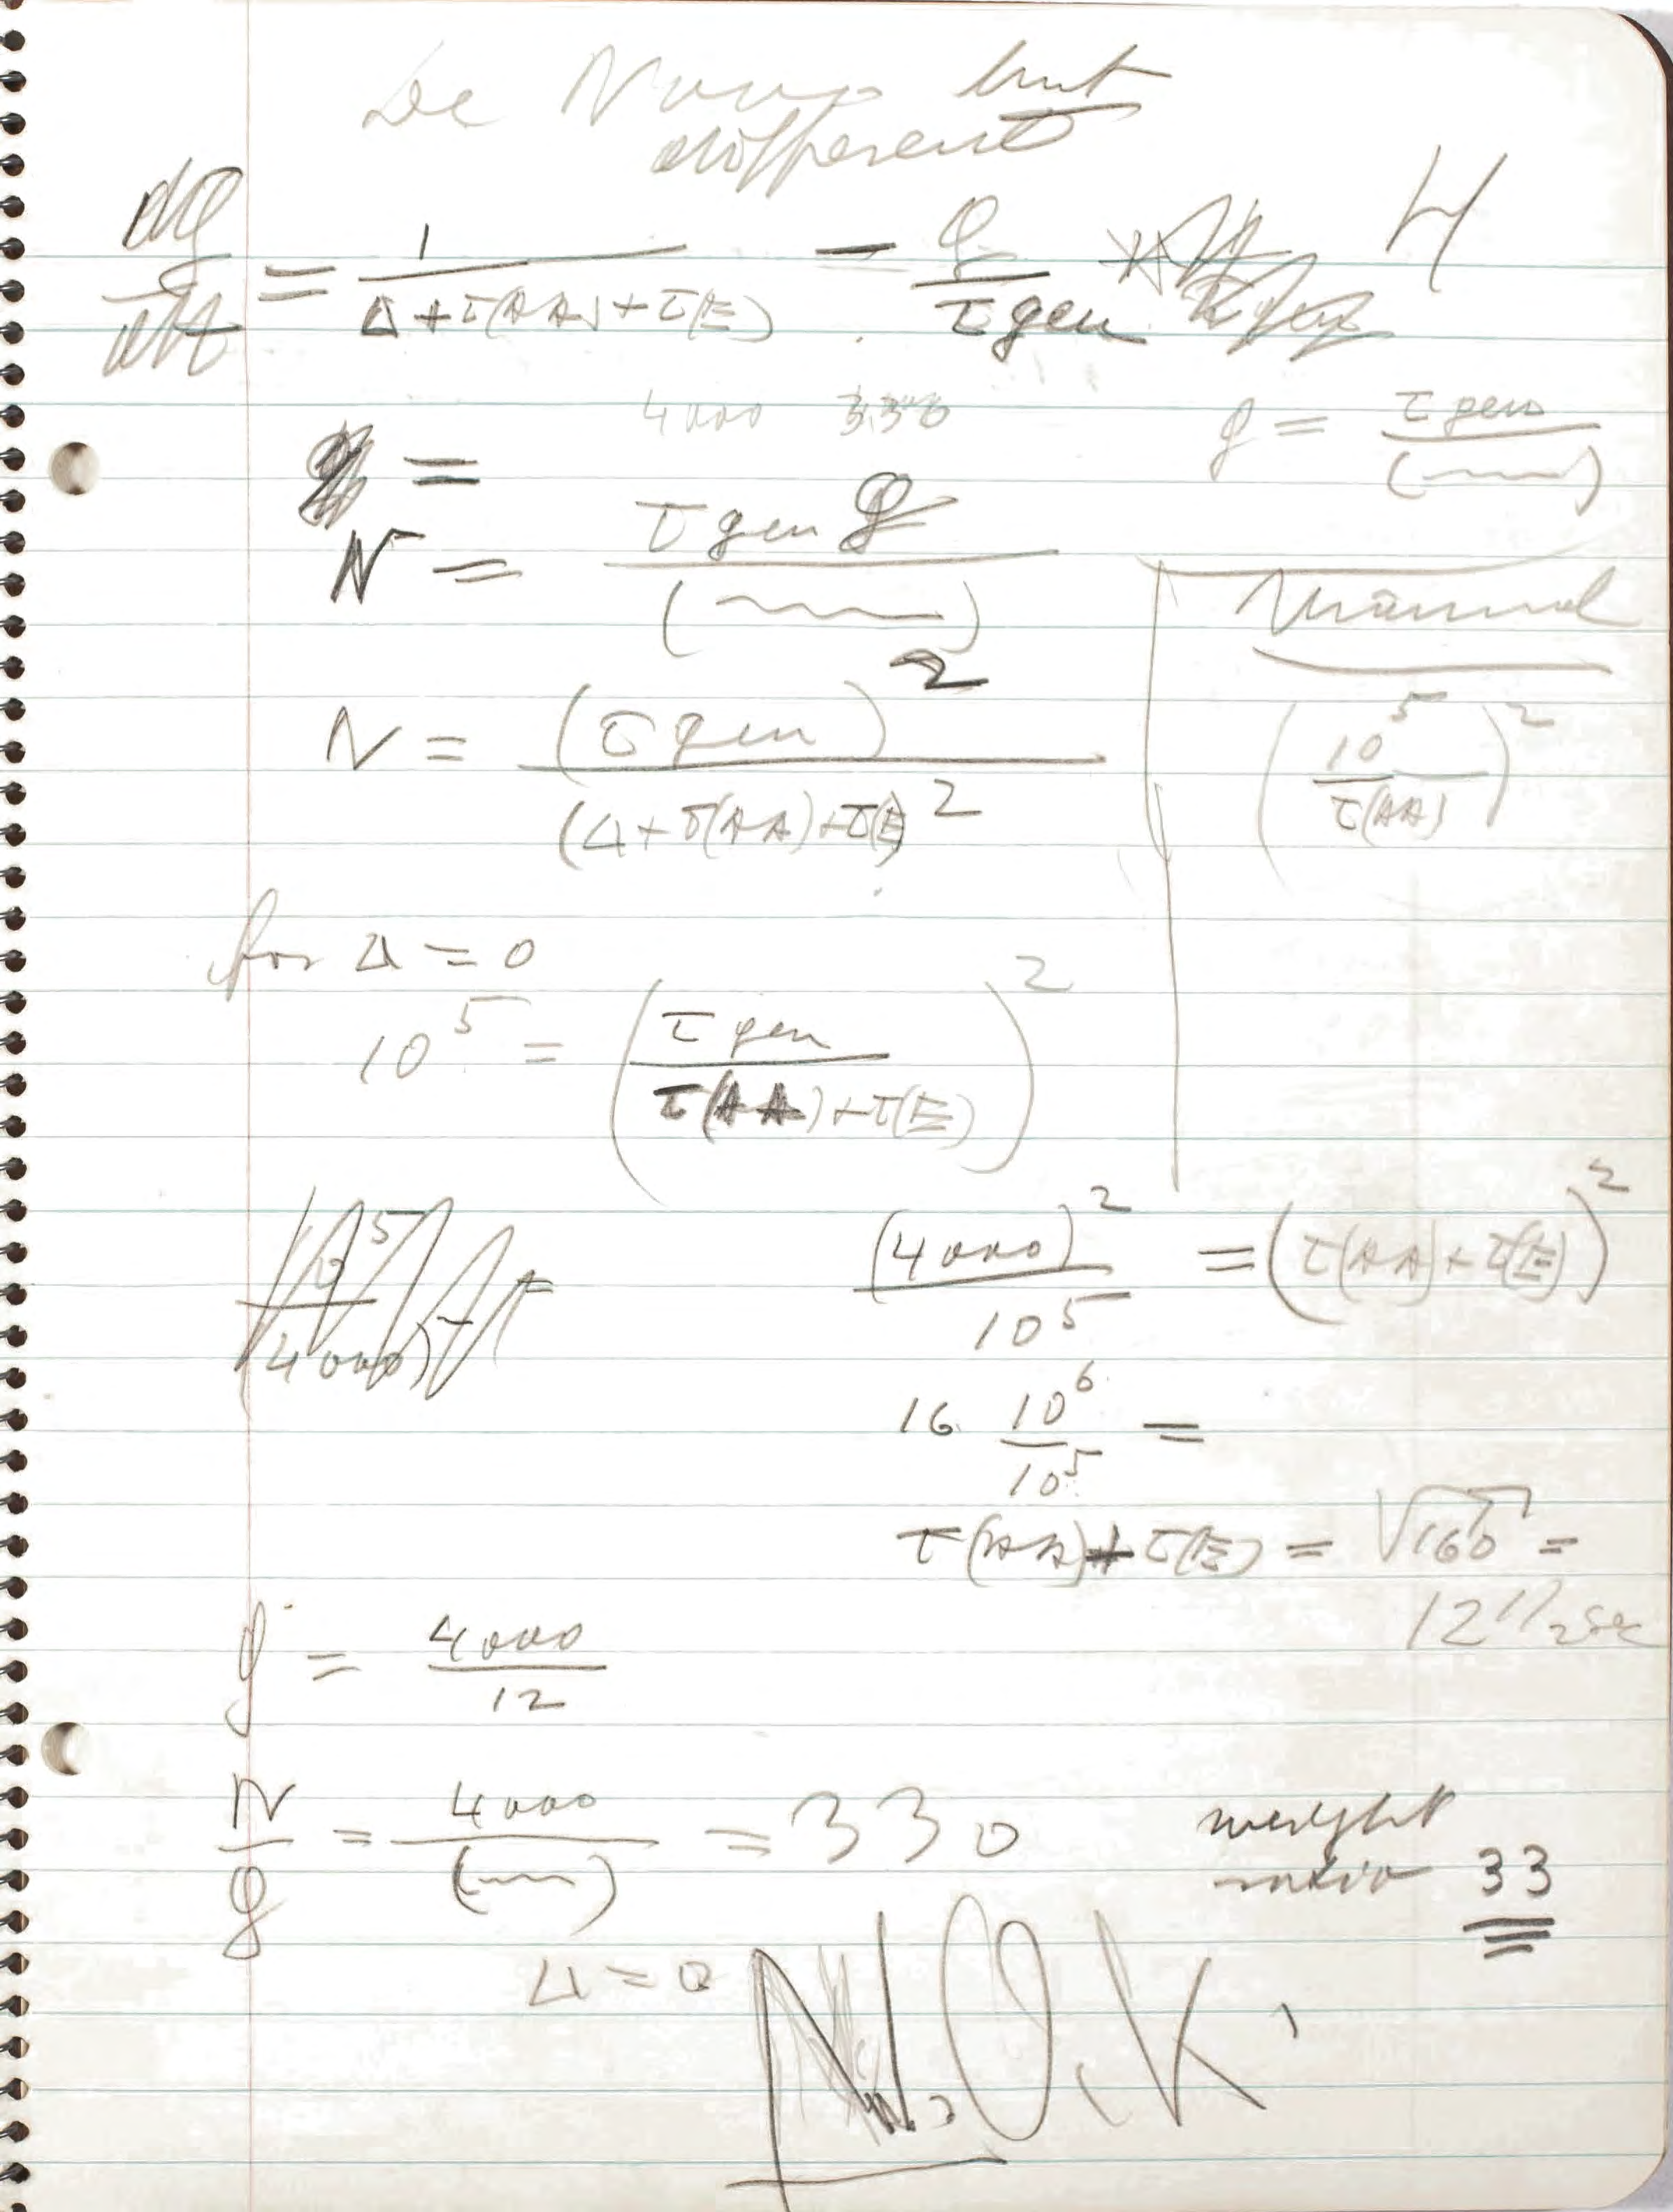 De Novo but
different
dg/dt = 1/(Δ + τ(AA) + τ(E)) − g/τgen 4
4000 330 g = τgen/(~~~)
=
N = τgen g/(~~~)
Minimal
N = (τgen)²/(Δ + τ(AA) + τ(E))² (10⁵/τ(AA))²
for Δ = 0
10⁵ = (τgen/(τ(AA) + τ(E)))²
(4000)²/10⁵ = (τ(AA) + τ(E))²
10⁵/(4000)
16 10⁶/10⁵ =
τ(AA) + τ(E) = √160 =
12 1/2 sec
g = 4000/12
N/g = 4000/(~~~) = 330 weight
ratio 33
Δ = 0
N.O.K.